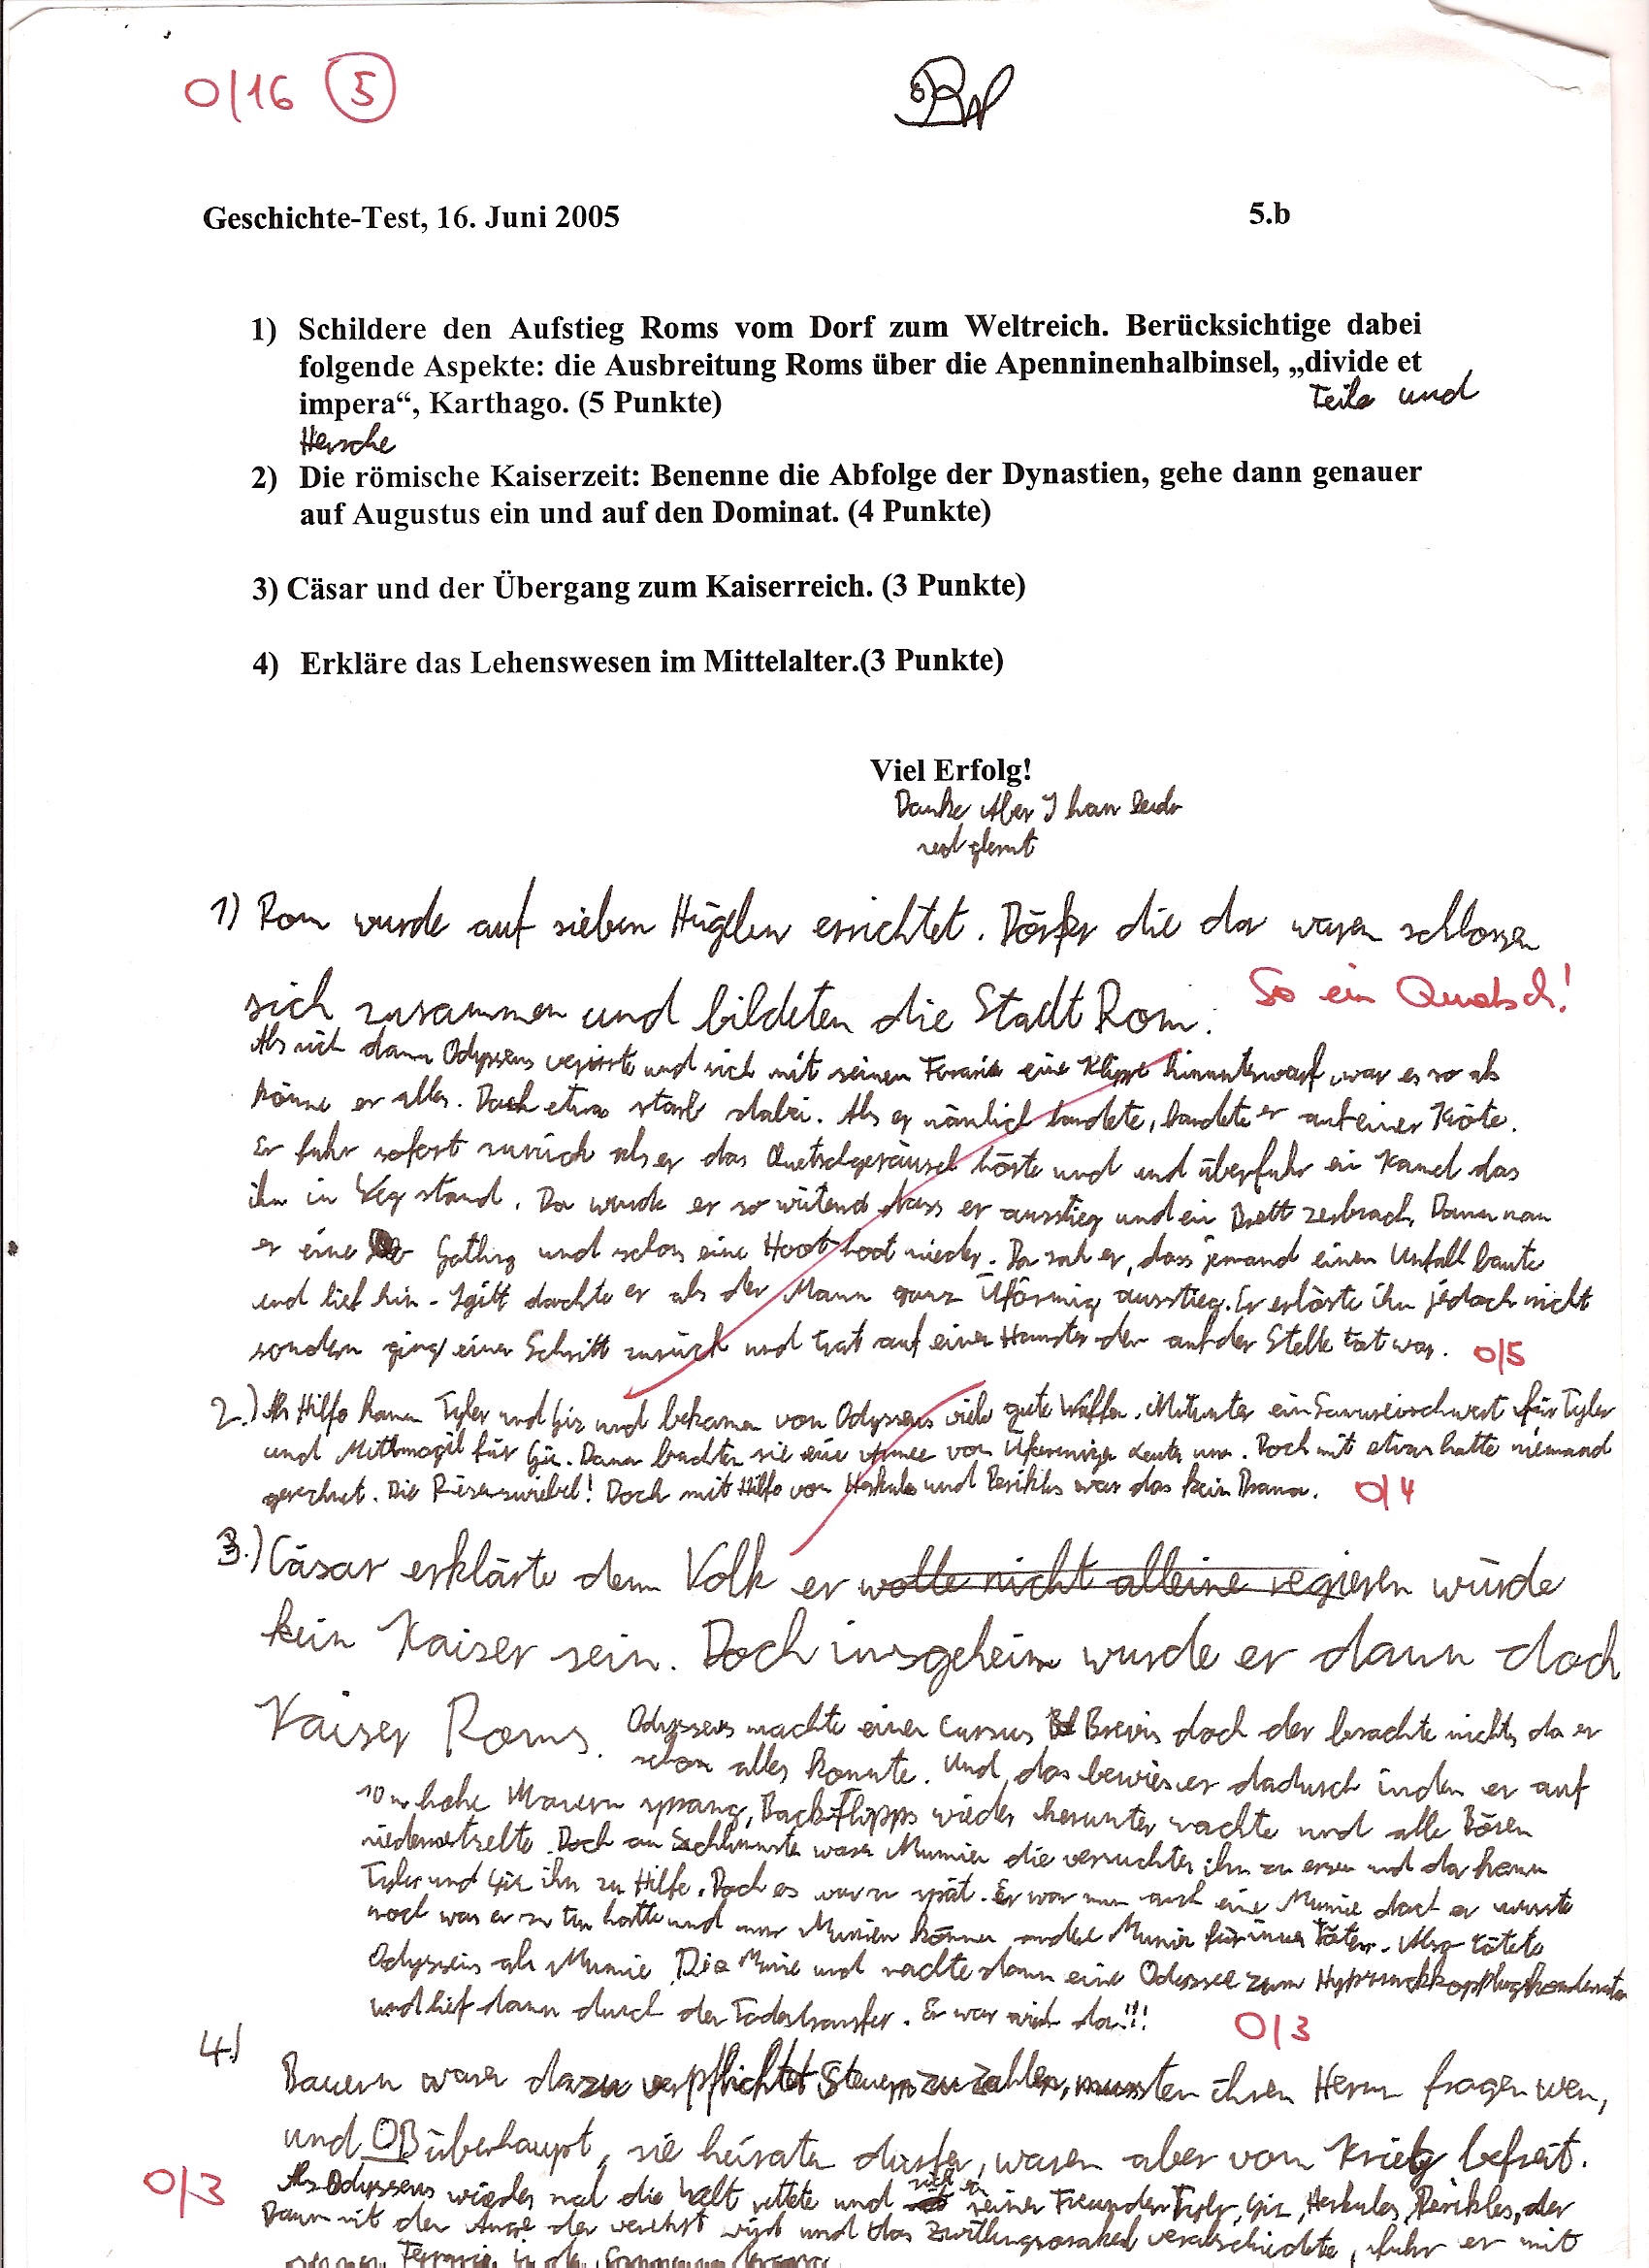 0/16 5
Geschichte-Test, 16. Juni 2005 5.b
1) Schildere den Aufstieg Roms vom Dorf zum Weltreich. Berücksichtige dabei
folgende Aspekte: die Ausbreitung Roms über die Apenninenhalbinsel, „divide et
impera“, Karthago. (5 Punkte) Teile und
Hersche
2) Die römische Kaiserzeit: Benenne die Abfolge der Dynastien, gehe dann genauer
auf Augustus ein und auf den Dominat. (4 Punkte)
3) Cäsar und der Übergang zum Kaiserreich. (3 Punkte)
4) Erkläre das Lehenswesen im Mittelalter.(3 Punkte)
Viel Erfolg!
Danke Aber I han leider
ned glernt
1) Rom wurde auf sieben Hügeln errichtet. Dörfer die da waren schlossen
sich zusammen und bildeten die Stadt Rom. So ein Quatsch!
Als sich dann Odysseus verirrte und sich mit seinen Ferrarie eine Klippe hinunterwarf war es so als
könne er alles. Doch etwas starb dabei. Als er nämlich landete, landete er auf einer Kröte.
Er fuhr sofort zurück als er das Quetschgeräusch hörte und und überfuhr ein Kamel das
ihm in Weg stand. Da wurde er so wütend dass er ausstieg und ein Brett zerbrach. Dann nam
er eine Gatling und schoss eine Hoot-hoot nieder. Da sah er, dass jemand einen Unfall baute
und lief hin. Igitt dachte er als der Mann ganz Uförmig ausstieg. Er erlöste ihn jedoch nicht
sondern ging einen Schritt zurück und trat auf einen Hamster der auf der Stelle tot war. 0/5
2.) Als Hilfe kamen Tyler und Giz und bekamen von Odysseus viele gute Waffen. Mitunter ein für Tyler
und für Giz. Dann brachten sie eine Armee von Uförmigen Leuten um. Doch mit etwas hatte niemand
gerechnet. Die Riesenzwiebel! Doch mit Hilfe von Herkules und Perikles war das kein Drama. 0/4
3.) Cäsar erklärte dem Volk er wolle nicht alleine regieren würde
kein Kaiser sein. Doch insgeheim wurde er dann doch
Kaiser Roms. Odysseus machte einen Cursus Brevis doch der brachte nichts da er
schon alles konnte. Und das bewies er dadurch indem er auf
10 m hohe Mauern sprang, Backflipps wieder herunter machte und alle Bösen
niedermetzelte. Doch am Schlimmsten waren Mumien die versuchten ihn zu essen und da kamen
Tyler und Giz ihm zu Hilfe. Doch es war zu spät. Er war nun auch eine Mumie doch er wusste
noch was er zu tun hatte und nur Mumien können andere Mumien für immer töten. Also tötete
Odysseus als Mumie Die Mumie und machte dann eine Odyssee zum
und lief dann durch den Todestransfer. Er war wieder da!!! 0/3
4.) Bauern waren dazu verpflichtet Steuern zu zahlen, mussten ihren Herrn fragen wen,
und OB überhaupt, sie heiraten durfen, waren aber vom Krieg befreit.
0/3 Als Odysseus wieder mal die Welt rettete und sich von seinen Freunden Tyler, Giz, Herkules, Perikles, der
Baum mit der Auge der verehrt wird und das Zwillingsorakel verabschiedete, fuhr er mit
seinem Ferrarie in den